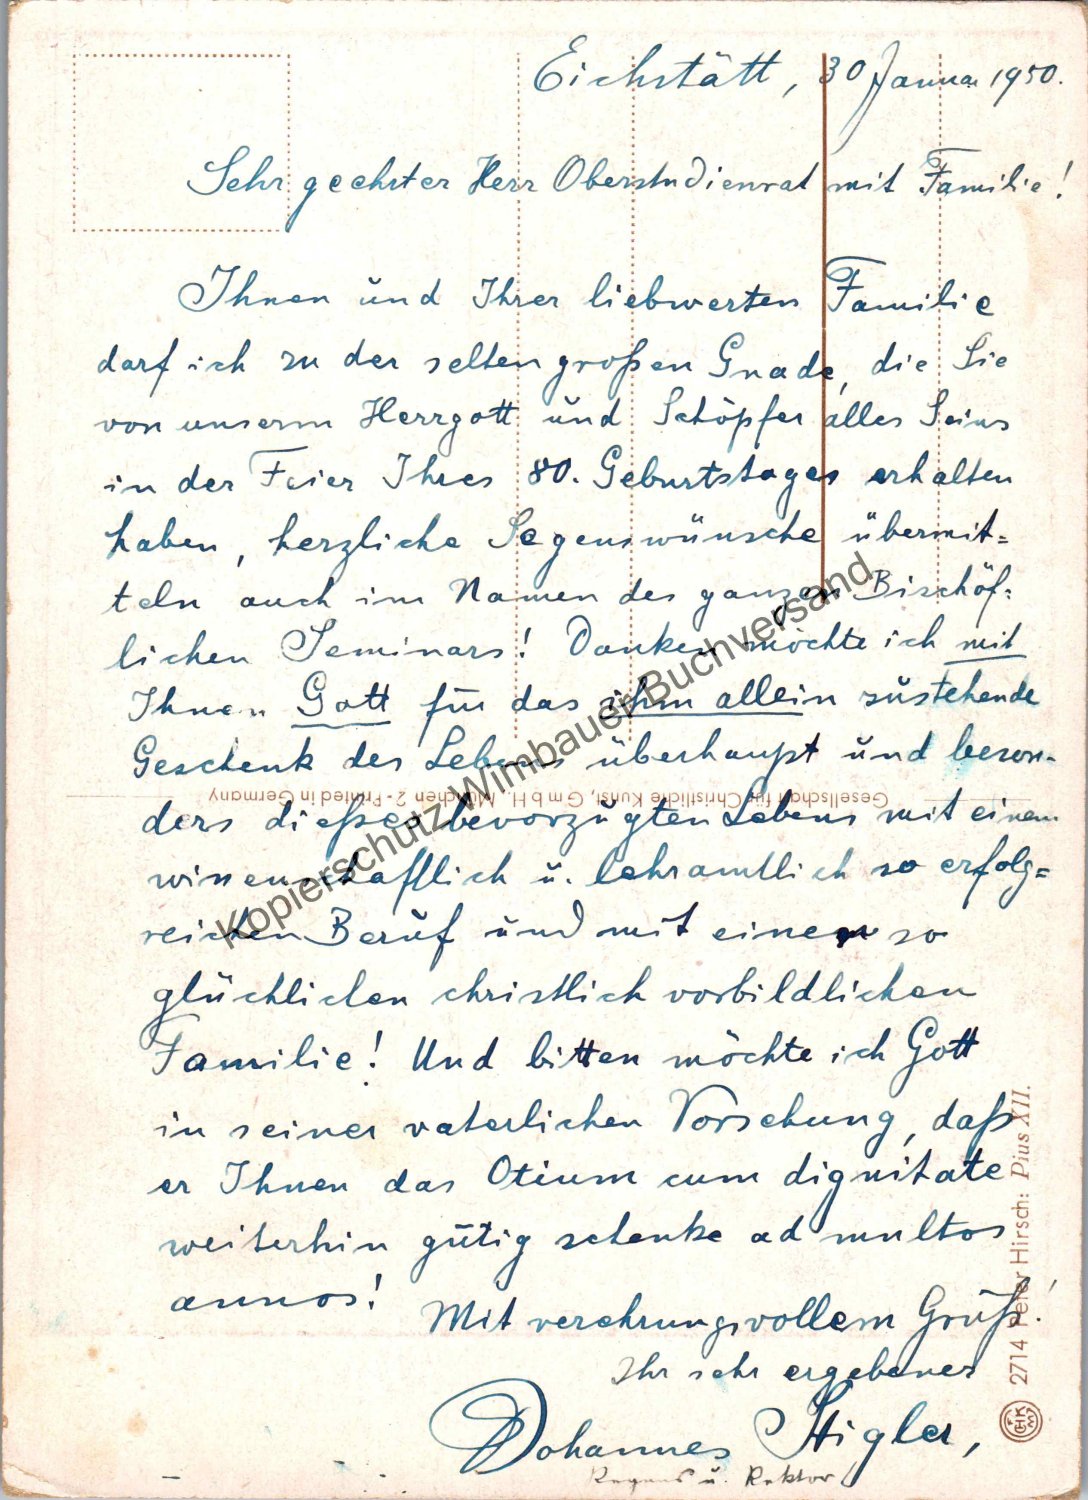 Eichstätt, 30 Januar 1950.
Sehr geehrter Herr Oberstudienrat mit Familie!
Ihnen und Ihrer liebwerten Familie
darf ich zu der selten großen Gnade, die Sie
von unserm Herrgott und Schöpfer alles Seins
in der Feier Ihres 80. Geburtstages erhalten
haben, herzliche Segenswünsche übermit=
teln auch im Namen des ganzen Bischöf=
lichen Seminars! Danken möchte ich mit
Ihnen Gott für das ihm allein zustehende
Geschenk des Lebens überhaupt und beson-
ders dießes bevorzugten Lebens mit einem
wissenschaftlich u. lehramtlich so erfolg=
reichen Beruf und mit einer so
glücklichen christlich vorbildlichen
Familie! Und bitten möchte ich Gott
in seiner vaterlichen Vorsehung, daß
er Ihnen das Otium cum dignitate
weiterhin gütig schenke ad multos
annos!
Mit verehrungsvollem Gruß!
Ihr sehr ergebener
Johannes Stigler,
Regens u. Rektor
Gesellschaft für Christliche Kunst, GmbH. München 2 - Printed in Germany
2714 Peter Hirsch: Pius XII.
Kopierschutz Wimbauer Buchversand